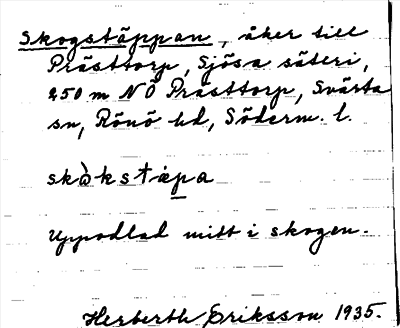 Skogstäppan, åker till
Prästtorp, Sjösa säteri,
250 m NÖ Prästtorp, Svärta
sn, Rönö hd, Söderm. l.
skòkstȧpa
Uppodlad mitt i skogen.
Herberth Eriksson 1935.